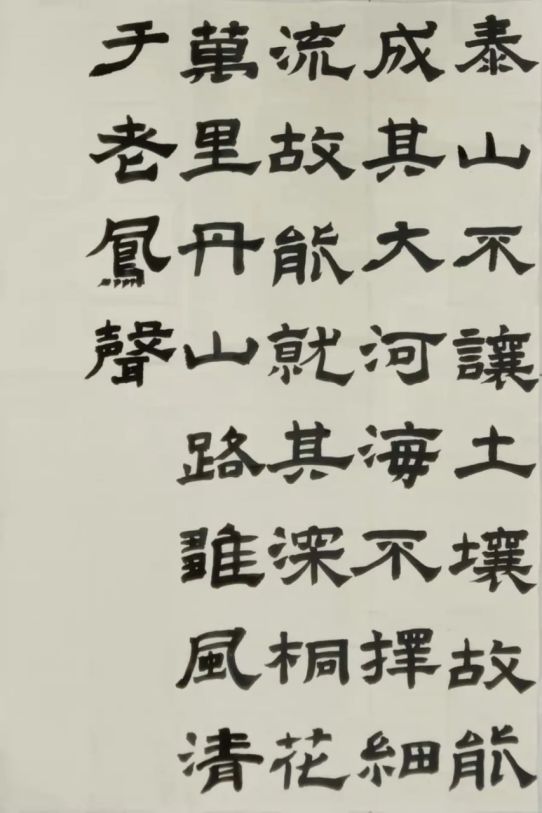 泰山不讓土壤故能
成其大河海不擇細
流故能就其深桐花
萬里丹山路雛風清
于老鳳聲